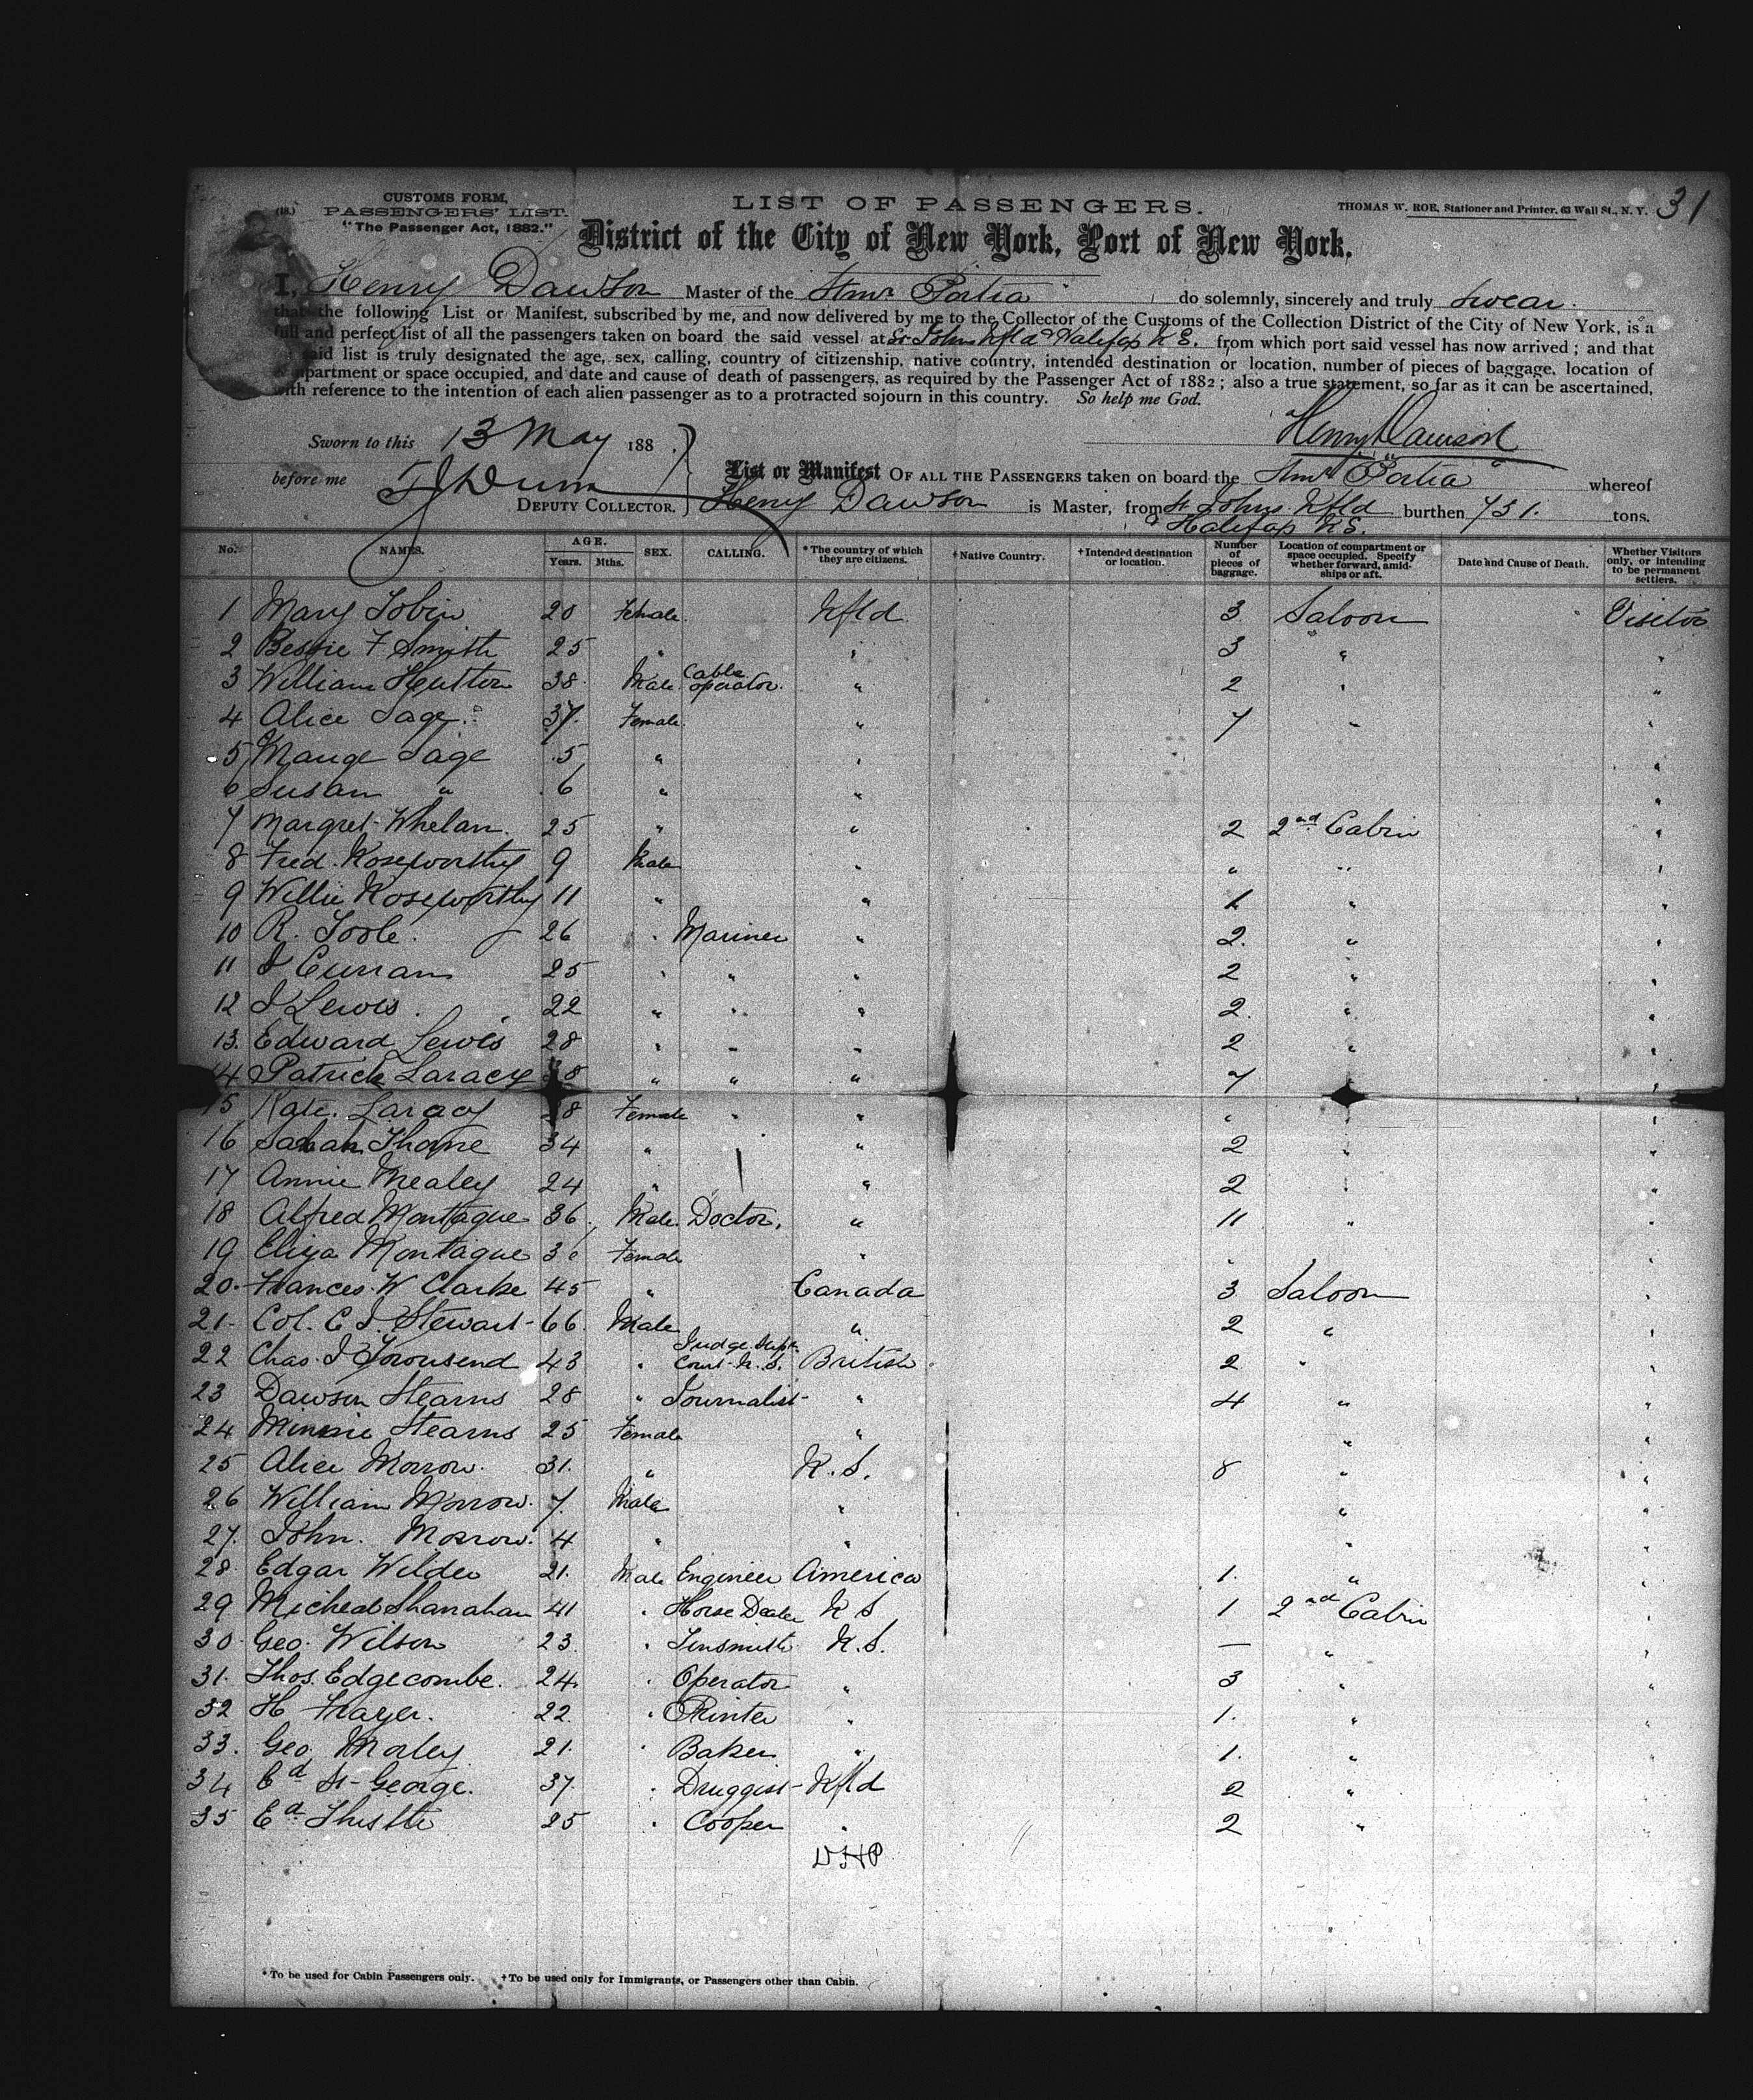 31
CUSTOMS FORM,
PASSENGERS' LIST.
"The Passenger Act, 1882."
LIST OF PASSENGERS.
THOMAS W. ROE, Stationer and Printer, 63 Wall St., N. Y.
District of the City of New York, Port of New York.
I, Henry Dawson Master of the Stmr Portia do solemnly, sincerely and truly swear.
that the following List or Manifest, subscribed by me, and now delivered by me to the Collector of the Customs of the Collection District of the City of New York, is a
full and perfect list of all the passengers taken on board the said vessel at St. Johns Nfld & Halifax N.S. from which port said vessel has now arrived; and that
said list is truly designated the age, sex, calling, country of citizenship, native country, intended destination or location, number of pieces of baggage, location of
compartment or space occupied, and date and cause of death of passengers, as required by the Passenger Act of 1882; also a true statement, so far as it can be ascertained,
with reference to the intention of each alien passenger as to a protracted sojourn in this country. So help me God.
Henry Dawson
Sworn to this 13 May 188
before me
DEPUTY COLLECTOR.
List or Manifest OF ALL THE PASSENGERS taken on board the Stmr "Portia" whereof
Henry Dawson is Master, from St Johns Nfld & Halifax N.S. burthen 731. tons.
No. NAMES. AGE. Years. Mths. SEX. CALLING. *The country of which they are citizens. †Native Country. †Intended destination or location. Number of pieces of baggage. Location of compartment or space occupied. Specify whether forward, amidships or aft. Date and Cause of Death. Whether Visitors only, or intending to be permanent settlers.
1 Mary Tobin 20 Female Nfld 3 Saloon Visitor
2 Bessie F Smith 25 " " 3 " "
3 William Hutton 38 Male Cable operator " 2 " "
4 Alice Sage 37 Female " 7 " "
5 Mauge Sage 5 " " "
6 Susan " 6 " " "
7 Margret Whelan 25 " " 2 2nd Cabin "
8 Fred. Roseworthy 9 Male " " " "
9 Willie Roseworthy 11 " " 1 " "
10 R. Toole. 26 " Mariner " 2. " "
11 J Curran 25 " " " 2 " "
12 J Lewis. 22 " " " 2. " "
13. Edward Lewis 28 " " " 2 " "
14 Patrick Laracy 28 " " " 7 " "
15 Kate. Laracy 28 Female " " " " "
16 Sarah Thorne 34 " " 2 " "
17 Annie Mealey 24 " " 2 " "
18 Alfred Montague 36 Male Doctor. " 11 " "
19 Eliza Montague 30 Female " "
20. Frances. W Clarke 45 " Canada 3 Saloon "
21. Col. C J Stewart 66 Male " 2 " "
22 Chas. J Townsend 43 " Judge Supr. Court N.S. British 2 " "
23 Dawson Stearns 28 " Journalist " 4 " "
24 Minnie Stearns 25 Female " " "
25 Alice Morrow. 31. " N.S. 8 " "
26 William Morrow. 7. Male " " "
27. John. Morrow. 4 " " " "
28. Edgar Wilder 21. Male Engineer America 1. " "
29 Micheal Shanahan 41 " Horse Dealer N S 1 2nd Cabin "
30. Geo. Wilson 23. " Tinsmith N.S. — " "
31. Thos. Edgecombe. 24. " Operator " 3 " "
32 H Frayer. 22. " Printer " 1. " "
33. Geo. Morley 21. " Baker " 1. " "
34 Ed St. George. 37. " Druggist Nfld 2 " "
35 Ed Thistle 25 " Cooper " 2 "
*To be used for Cabin Passengers only. †To be used only for Immigrants, or Passengers other than Cabin.